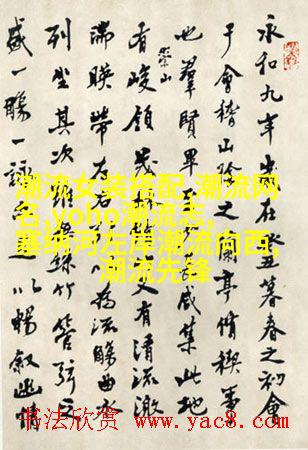 永和九年歲在癸丑暮春之初會
于會稽山陰之蘭亭脩稧事
也羣賢畢至少長咸集此地
有崇山峻領茂林脩竹又有清流激
湍暎帶左右引以為流觴曲水
列坐其次雖無絲竹管弦之
盛一觴一詠亦足以暢敘幽情
潮流女装搭配,潮流网
名,yoho潮流志,
塞纳河左岸潮流向西,
潮流先锋
书法欣赏 www.yac8.com